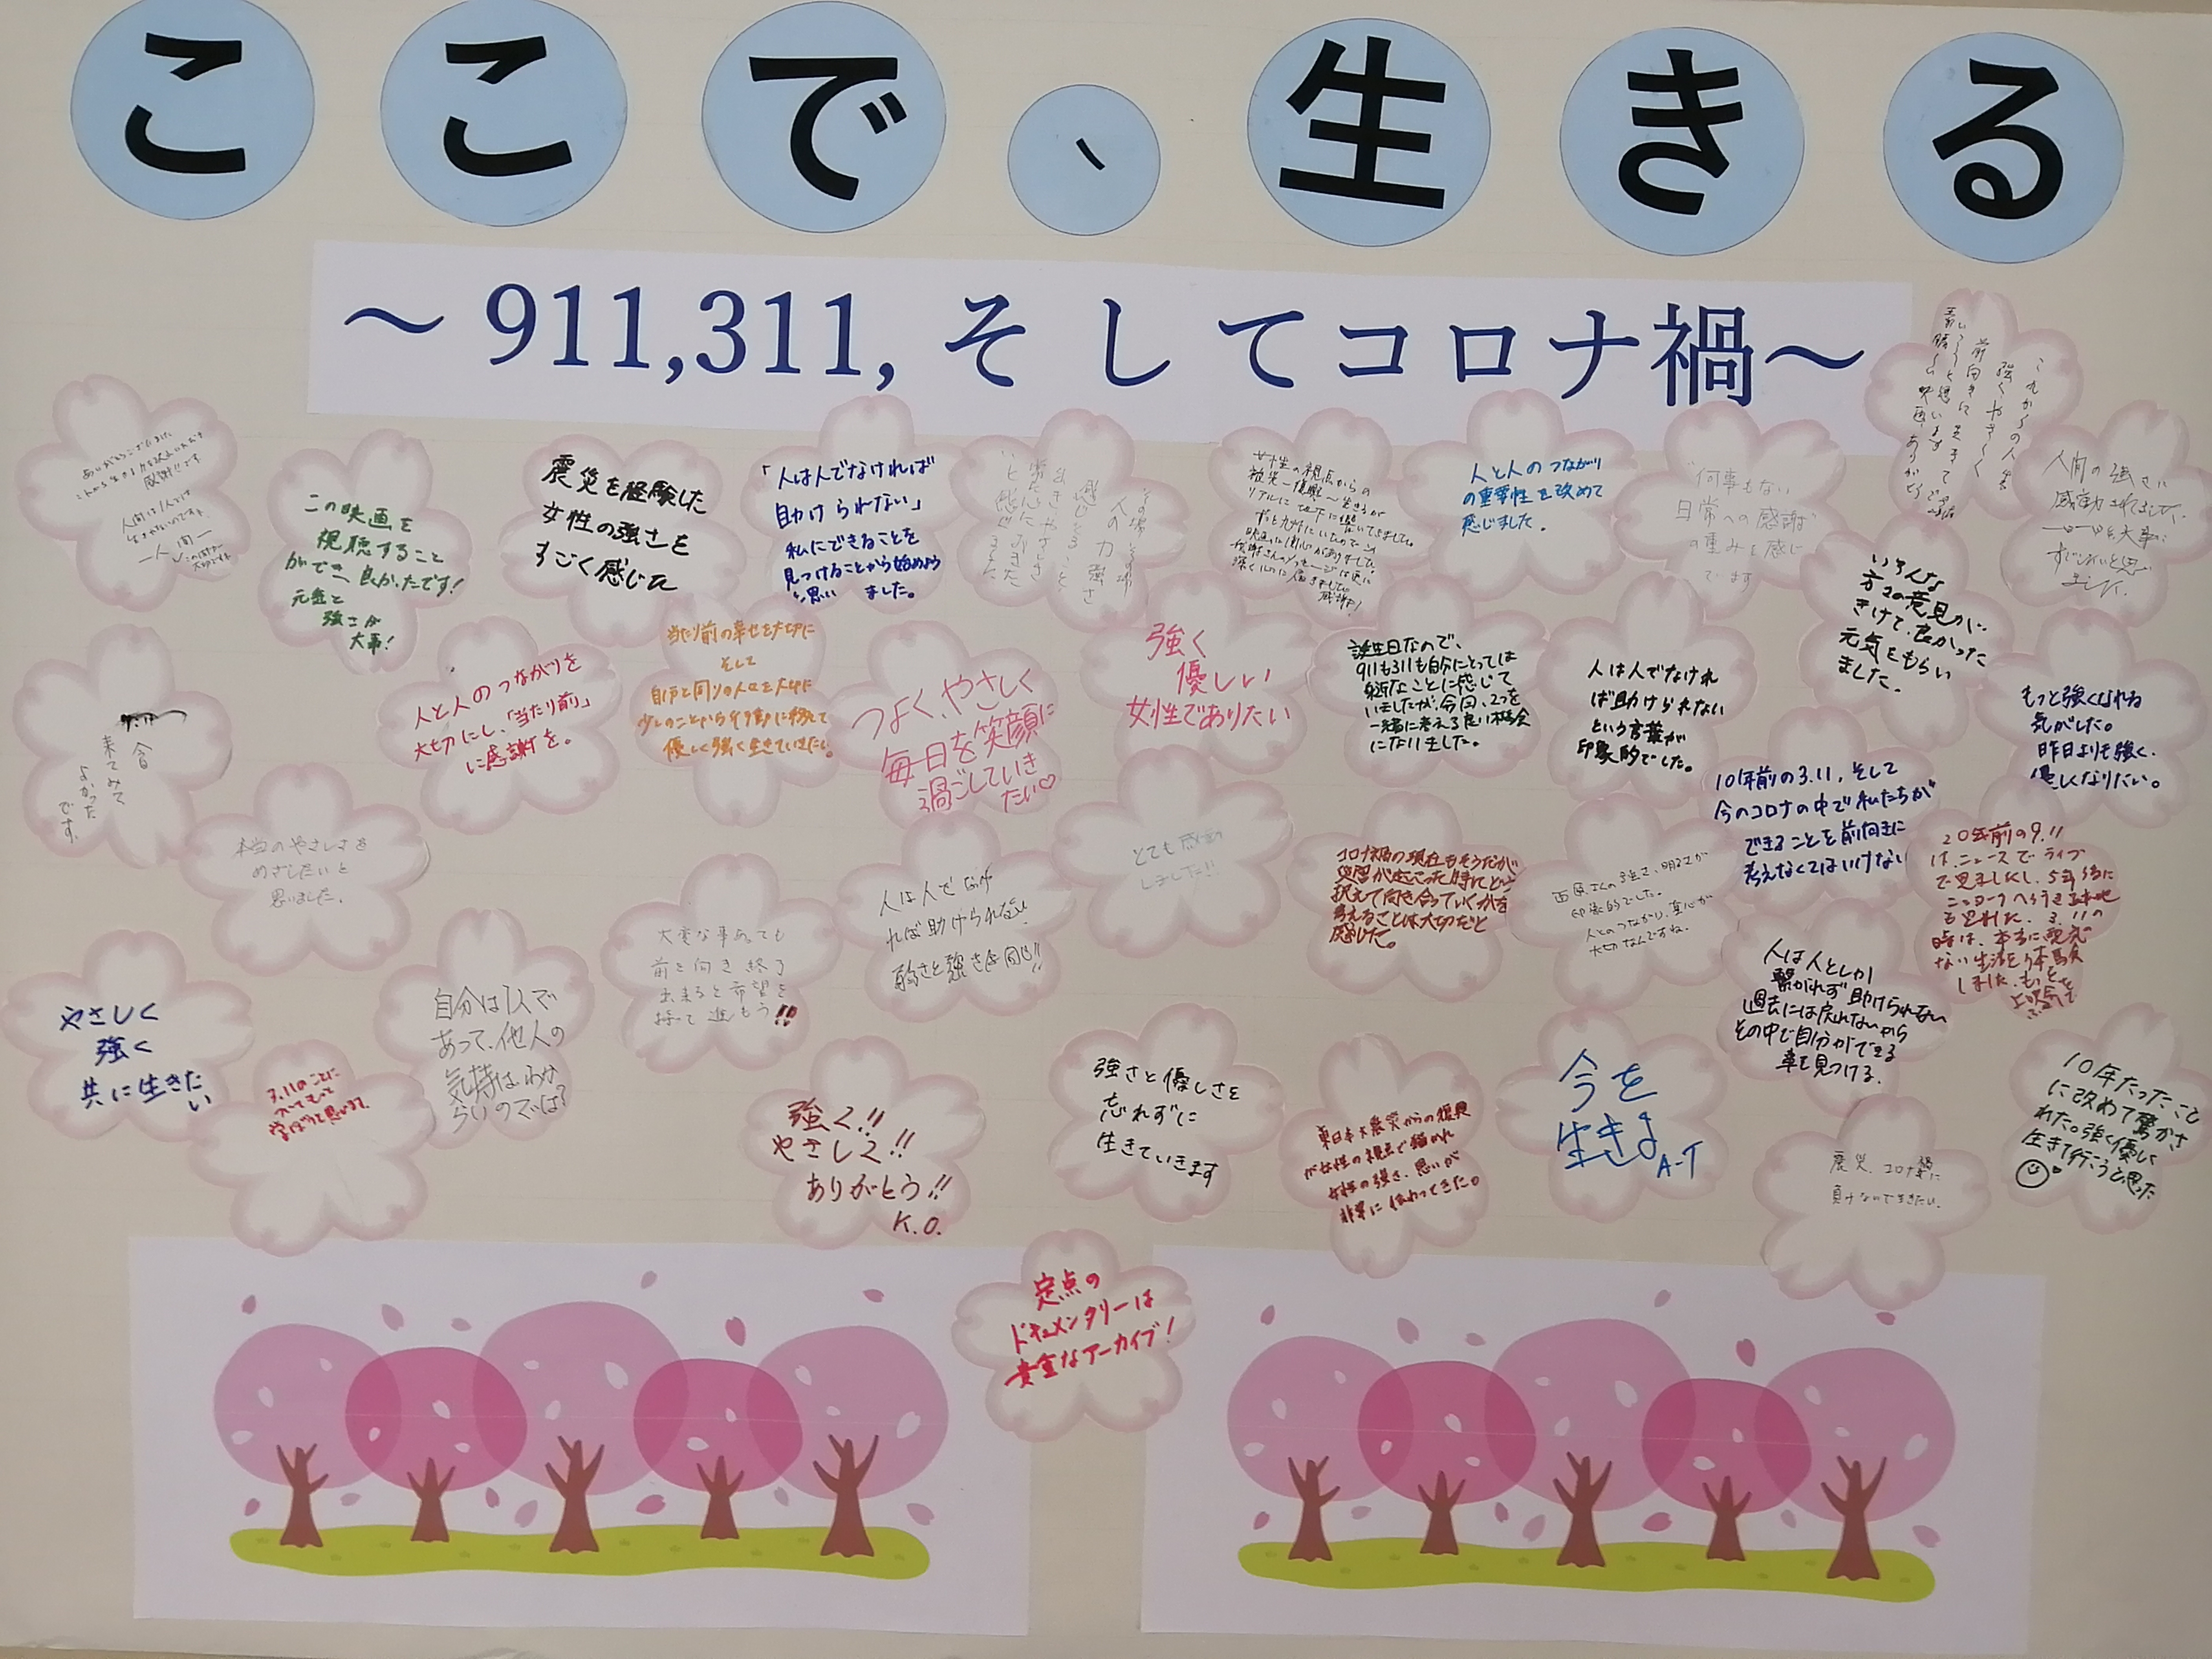 ここで、生きる
〜911,311,そしてコロナ禍〜
この映画を
視聴すること
ができ、良かったです!
元気と
強さが
大事!
震災を経験した
女性の強さを
すごく感じた
「人は人でなければ
助けられない」
私にできることを
見つけることから始めよう
と思い ました。
女性の視点からの
人と人のつながり
の重要性を改めて
感じました。
何事もない
日常への感謝
の重みを感じ
です
これからの人生
強くやさしく
前向きに生きて
いこうと思います
素晴しい映画ありがとう
人間の強さに
いろんな
方々の意見が
きけて、良かった
元気をもらい
ました。
人と人のつながりを
大切にし、「当たり前」
に感謝を。
当たり前の幸せを大切に
そして
自分と周りの人々を大切に
少しのことから行動に移して
優しく強く生きていきたい。
つよく、やさしく
毎日を笑顔に
過ごしていき
たい♡
強く
優しい
女性でありたい
誕生日なので、
911も311も自分にとっては
身近なことに感じて
いましたが、今回、2つを
一緒に考える良い機会
になりました。
人は人でなけれ
ば助けられない
という言葉が
印象的でした。
もっと強くなれる
気がした。
昨日よりも強く、
優しくなりたい。
今日
来てみて
よかった
です。
10年前の3.11、そして
今のコロナの中で私たちが
できることを前向きに
考えなくてはいけない
本当のやさしさを
めざしたいと
思いました。
大変な事あっても
前を向き
希望を
持って進もう!!
人は人でなけ
れば助けられない
弱さと強さは同じ!!
とても感動
しました!!
コロナ禍の現在もそうだが
災害が起こった時にどう
捉えて向き合っていくかを
考えることは大切だと
感じた。
印象的でした。
人とのつながり、真心が
大切なんですね。
20年前の9.11
は、ニュースでライブ
で見ましたし、5年後に
ニューヨークへ行き
も訪れた。3.11の
時は、本当に電気の
ない生活を体験
しました。もっと
人は人としか
繋がれず助けられない
過去には戻れないから
その中で自分ができる
事を見つける。
やさしく
強く
共に生きた
い
3.11のことに
ついてもっと
学ぼうと思います。
自分は1人で
あって、他人の
気持はわか
らいのでは?
強く!!
やさしく!!
ありがとう!!
K.O.
強さと優しさを
忘れずに
生きていきます
東日本大震災からの復興
が女性の視点で描かれ
女性の強さ、思いが
非常に伝わってきた。
今を
生きよ
A-T
10年たったこと
に改めて驚かさ
れた。強く優しく
生きて行こうと思った
震災、コロナ禍に
負けないで生きたい。
定点の
ドキュメンタリーは
貴重なアーカイブ!